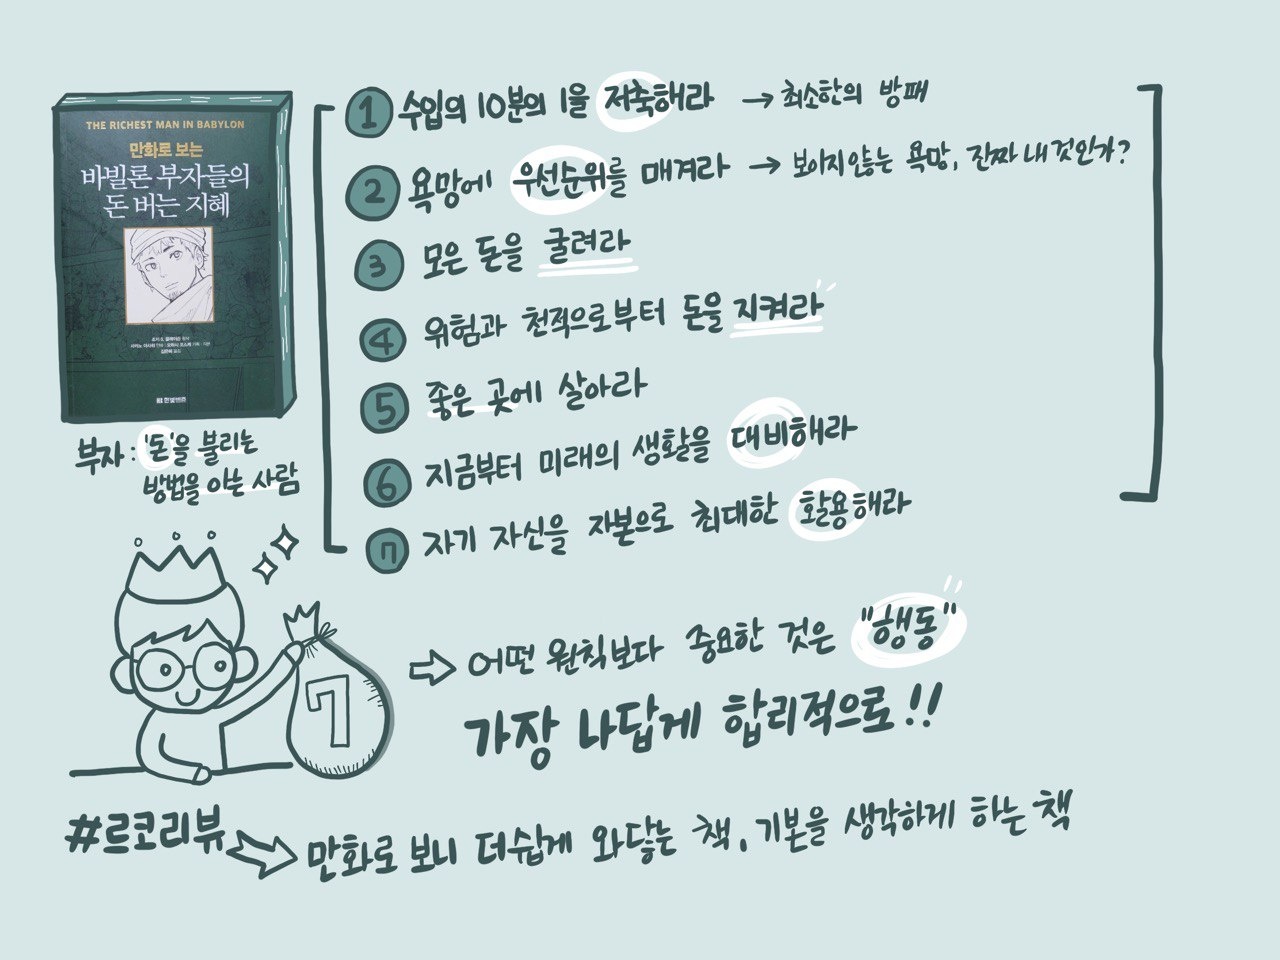 THE RICHEST MAN IN BABYLON
만화로 보는
바빌론 부자들의
돈 버는 지혜
한빛비즈
부자 : '돈'을 불리는
방법을 아는 사람
① 수입의 10분의 1을 저축해라 → 최소한의 방패
② 욕망에 우선순위를 매겨라 → 보이지 않는 욕망, 진짜 내 것인가?
③ 모은 돈을 굴려라
④ 위험과 천적으로부터 돈을 지켜라
⑤ 좋은 곳에 살아라
⑥ 지금부터 미래의 생활을 대비해라
⑦ 자기 자신을 자본으로 최대한 활용해라
7
⇨ 어떤 원칙보다 중요한 것은 "행동"
가장 나답게 합리적으로!!
#르코리뷰 ⇨ 만화로 보니 더 쉽게 와닿는 책, 기본을 생각하게 하는 책